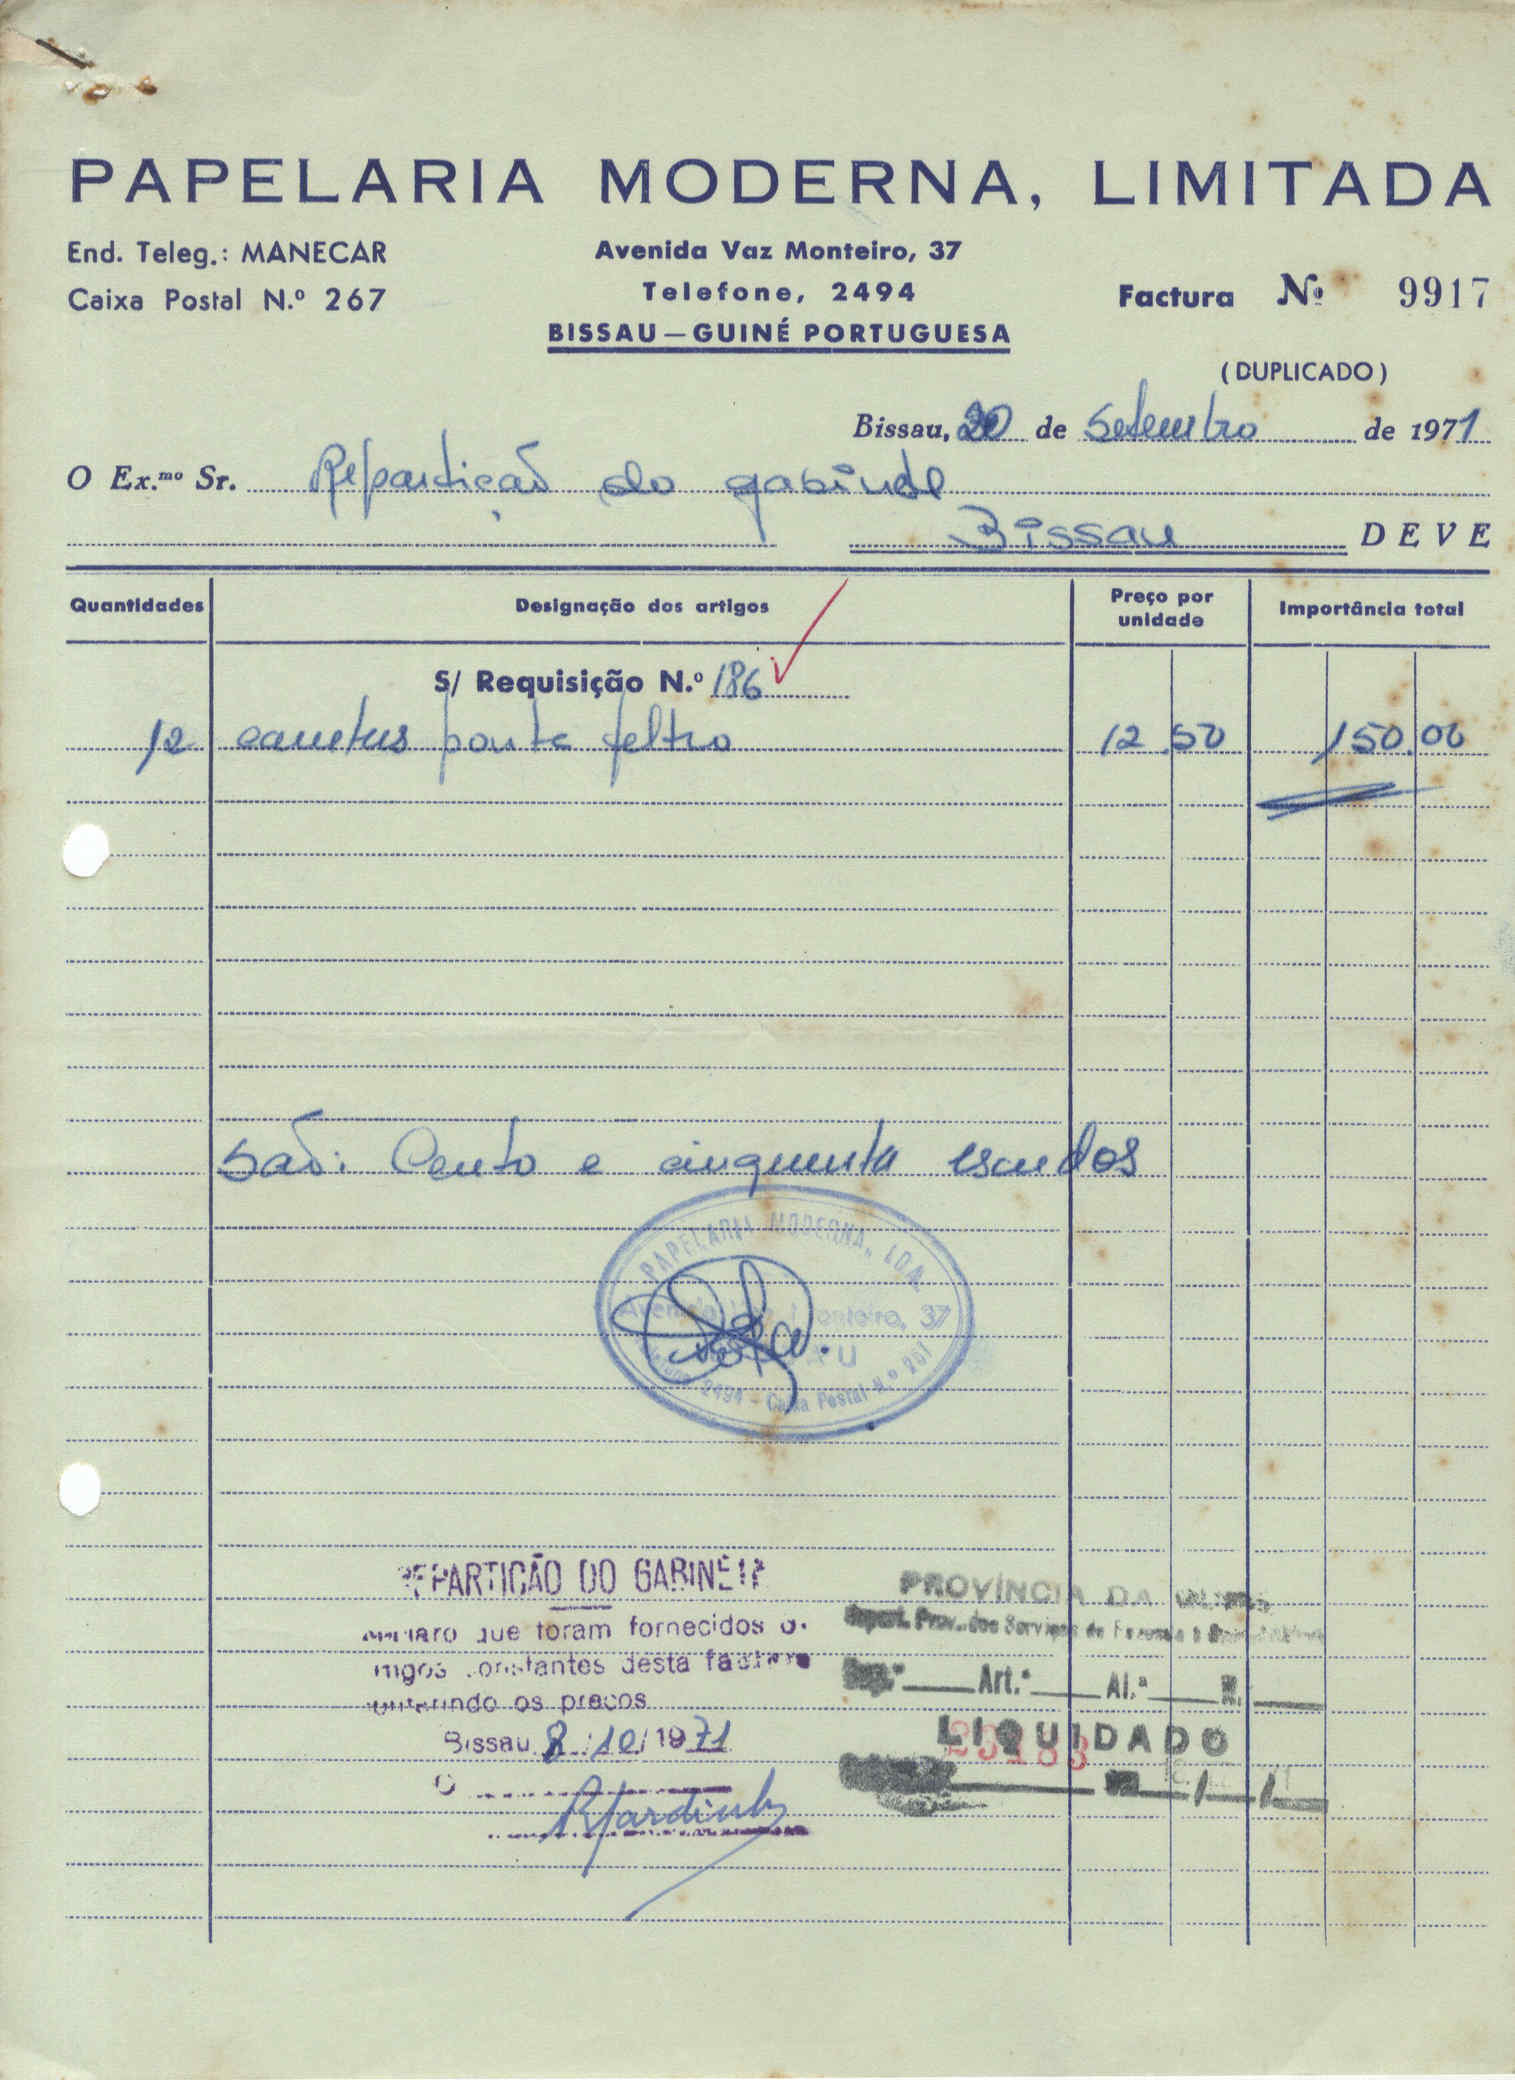 PAPELARIA MODERNA, LIMITADA
End. Teleg.: MANECAR
Caixa Postal N.º 267
Avenida Vaz Monteiro, 37
Telefone, 2494
BISSAU — GUINÉ PORTUGUESA
Factura Nº 9917
(DUPLICADO)
Bissau, de Setembro de 1971
O Ex.mo Sr. Repartição do gabinete
Bissau DEVE
Quantidades Designação dos artigos Preço por unidade Importância total
S/ Requisição N.º 186
12 canetas ponta feltro 12.50 150.00
São: Cento e cinquenta escudos
PAPELARIA MODERNA, LDA.
Avenida Vaz Monteiro, 37
BISSAU
2494 - Caixa Postal N.º 267
REPARTIÇÃO DO GABINETE
que foram fornecidos
constantes desta factura
os preços
Bissau 8/10/1971
O
PROVÍNCIA DA
Repart. Prov. dos Serviços de
Art.º Al.ª
LIQUIDADO